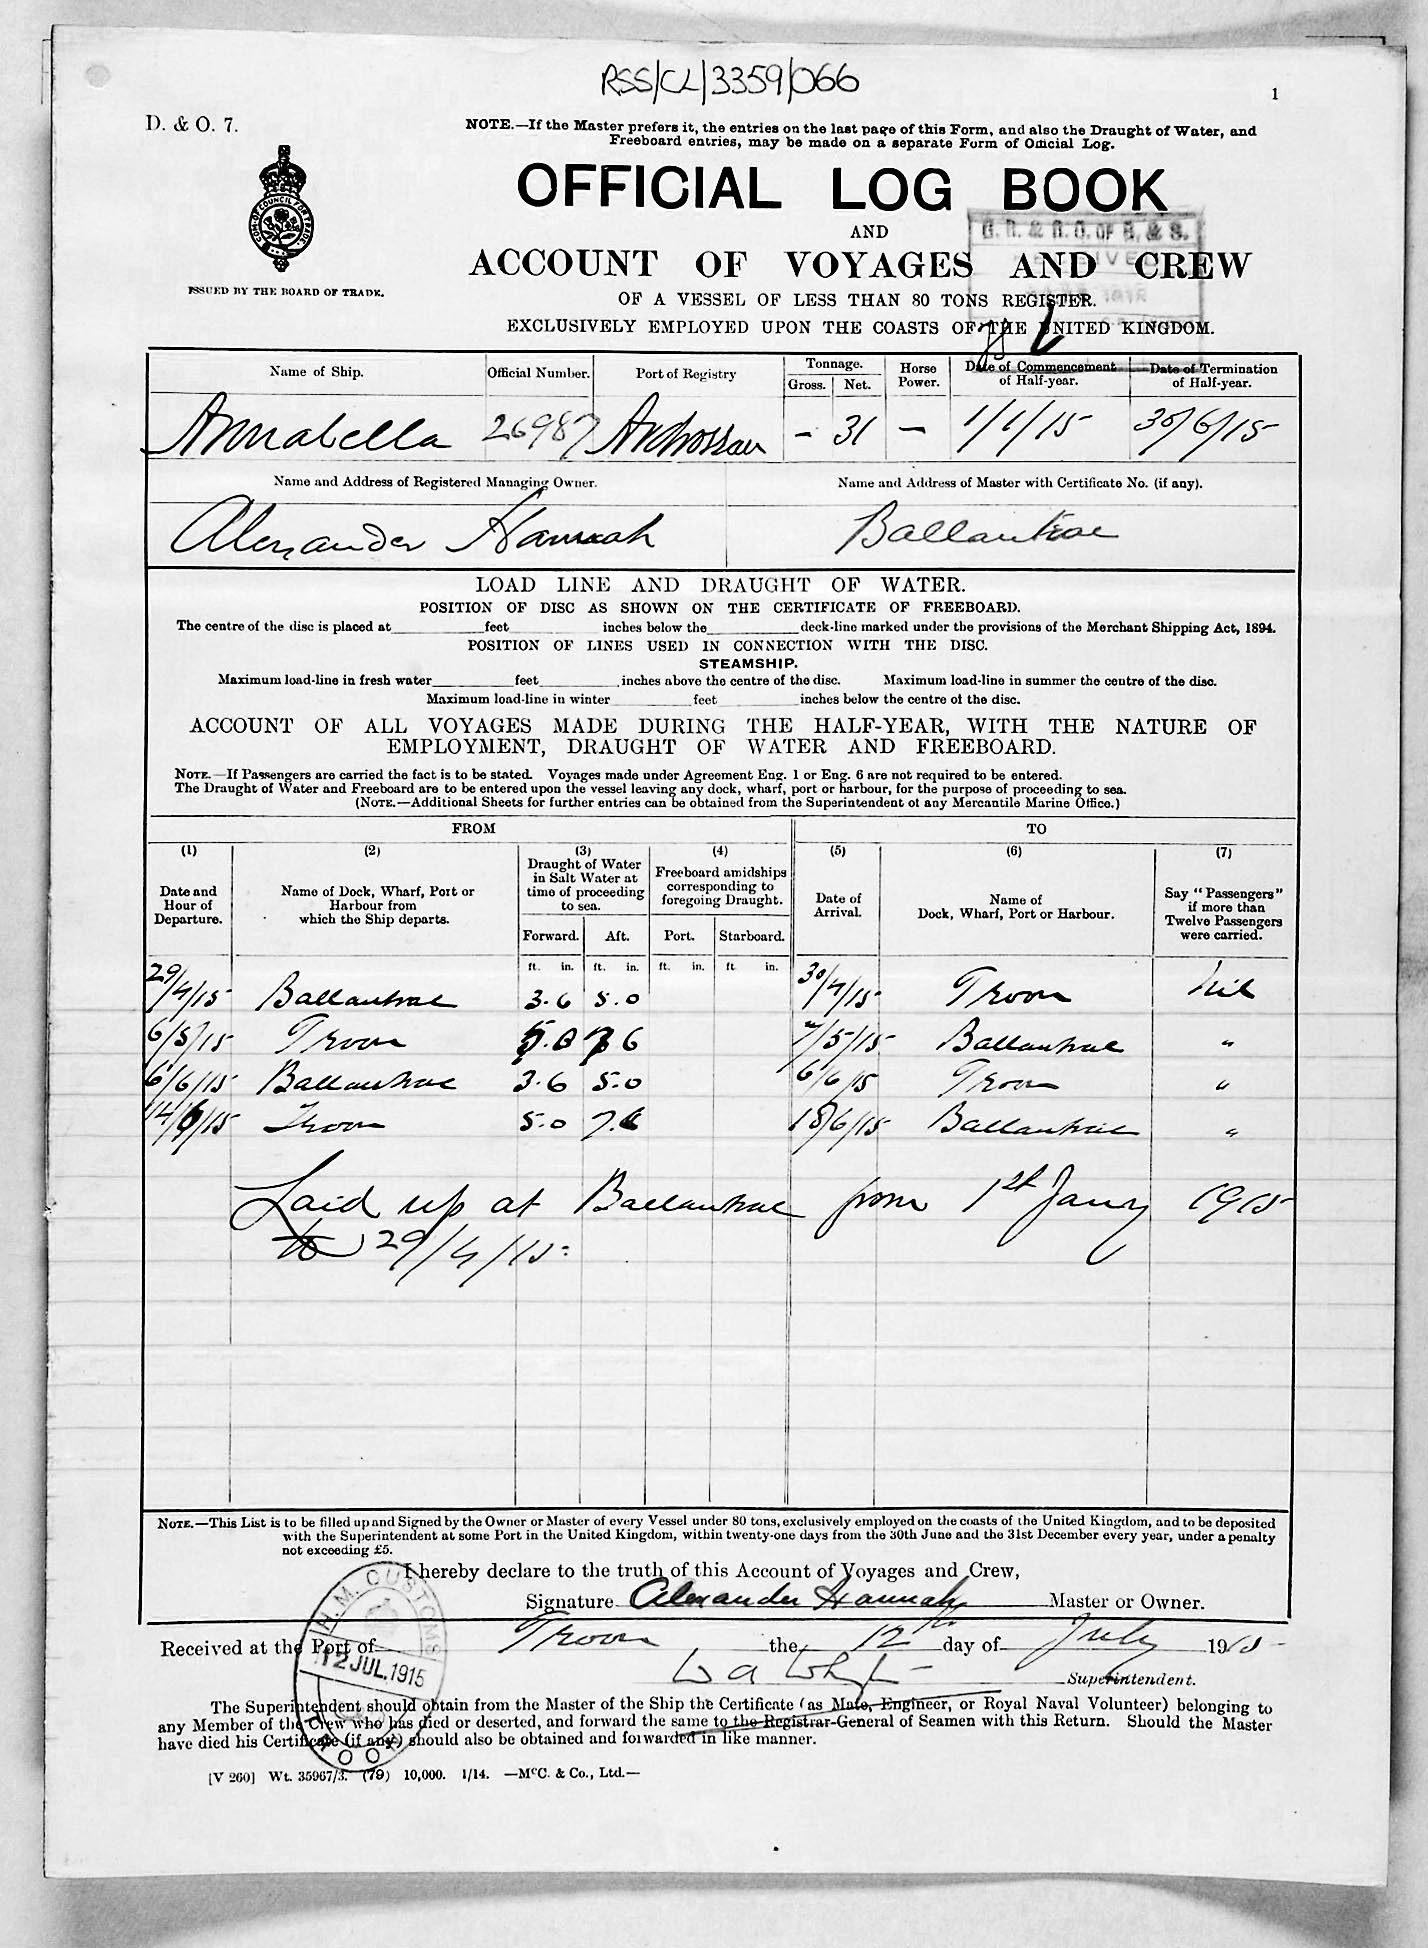 RSS/CL/3359/066
1
D. & O. 7.
NOTE.—If the Master prefers it, the entries on the last page of this Form, and also the Draught of Water, and
Freeboard entries, may be made on a separate Form of Official Log.
OFFICIAL LOG BOOK
AND
ACCOUNT OF VOYAGES AND CREW
OF A VESSEL OF LESS THAN 80 TONS REGISTER.
EXCLUSIVELY EMPLOYED UPON THE COASTS OF THE UNITED KINGDOM.
COM. OF COUNCIL FOR TRADE
ISSUED BY THE BOARD OF TRADE.
Name of Ship. Official Number. Port of Registry Tonnage. Gross. Net. Horse Power. Date of Commencement of Half-year. Date of Termination of Half-year.
Annabella 26987 Ardrossan – 31 – 1/1/15 30/6/15
Name and Address of Registered Managing Owner. Name and Address of Master with Certificate No. (if any).
Alexander Hannah Ballantrae
LOAD LINE AND DRAUGHT OF WATER.
POSITION OF DISC AS SHOWN ON THE CERTIFICATE OF FREEBOARD.
The centre of the disc is placed at feet inches below the deck-line marked under the provisions of the Merchant Shipping Act, 1894.
POSITION OF LINES USED IN CONNECTION WITH THE DISC.
STEAMSHIP.
Maximum load-line in fresh water feet inches above the centre of the disc. Maximum load-line in summer the centre of the disc.
Maximum load-line in winter feet inches below the centre of the disc.
ACCOUNT OF ALL VOYAGES MADE DURING THE HALF-YEAR, WITH THE NATURE OF
EMPLOYMENT, DRAUGHT OF WATER AND FREEBOARD.
NOTE.—If Passengers are carried the fact is to be stated. Voyages made under Agreement Eng. 1 or Eng. 6 are not required to be entered.
The Draught of Water and Freeboard are to be entered upon the vessel leaving any dock, wharf, port or harbour, for the purpose of proceeding to sea.
(NOTE.—Additional Sheets for further entries can be obtained from the Superintendent of any Mercantile Marine Office.)
FROM TO
(1) (2) (3) (4) (5) (6) (7)
Date and Hour of Departure. Name of Dock, Wharf, Port or Harbour from which the Ship departs. Draught of Water in Salt Water at time of proceeding to sea. Freeboard amidships corresponding to foregoing Draught. Date of Arrival. Name of Dock, Wharf, Port or Harbour. Say "Passengers" if more than Twelve Passengers were carried.
Forward. Aft. Port. Starboard.
ft. in. ft. in. ft. in. ft in.
29/4/15 Ballantrae 3.6 5.0 30/4/15 Troon Nil
6/5/15 Troon 5.0 7 6 7/5/15 Ballantrae "
6/6/15 Ballantrae 3.6 5.0 6/6/15 Troon "
14/6/15 Troon 5.0 7.6 18/6/15 Ballantrae "
Laid up at Ballantrae from 1st Jany 1915
to 29/4/15.
NOTE.—This List is to be filled up and Signed by the Owner or Master of every Vessel under 80 tons, exclusively employed on the coasts of the United Kingdom, and to be deposited
with the Superintendent at some Port in the United Kingdom, within twenty-one days from the 30th June and the 31st December every year, under a penalty
not exceeding £5.
I hereby declare to the truth of this Account of Voyages and Crew,
Signature Alexander Hannah Master or Owner.
Received at the Port of Troon the 12th day of July 1915
Superintendent.
H.M. CUSTOMS
12 JUL. 1915
TROON
The Superintendent should obtain from the Master of the Ship the Certificate (as Mate, Engineer, or Royal Naval Volunteer) belonging to
any Member of the Crew who has died or deserted, and forward the same to the Registrar-General of Seamen with this Return. Should the Master
have died his Certificate (if any) should also be obtained and forwarded in like manner.
[V 260] Wt. 35967/3. (79) 10,000. 1/14. —McC. & Co., Ltd.—